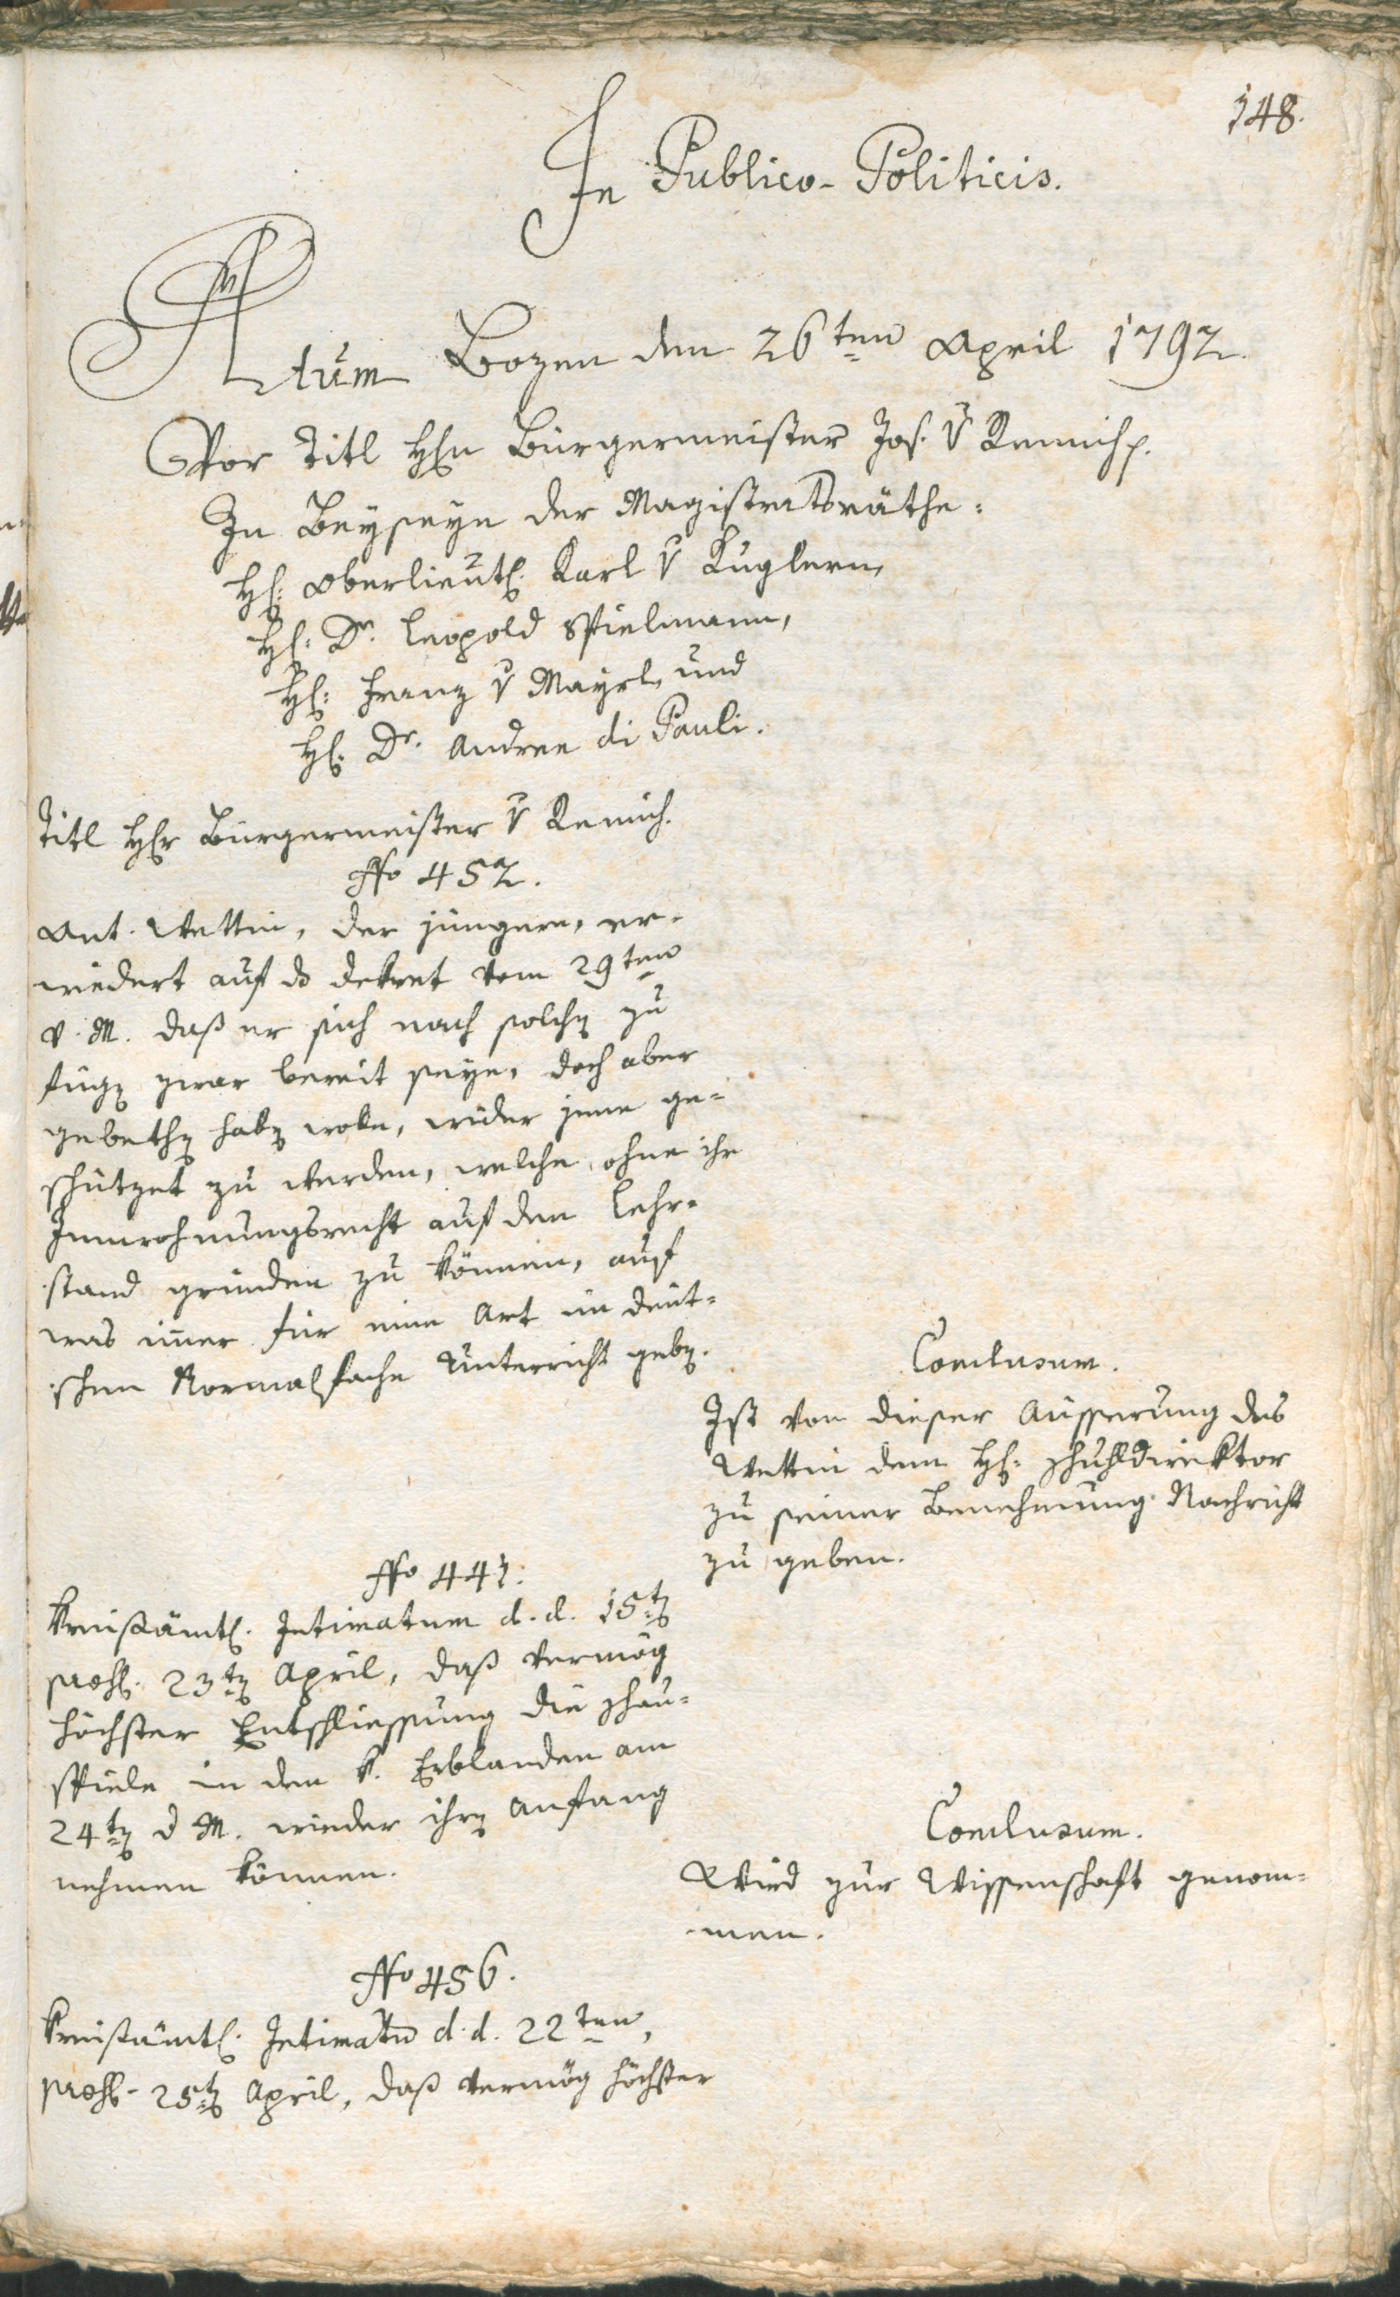 148.
In Publico-Politicis.
Actum Bozen den 26ten April 1792.
Vor Titl Hn Bürgermeister Jos. v Remich p.
In Beyseyn der Magistratsräthe:
H: Oberlieut. Karl v Kuglern,
H: Dr. Leopold Spielmann,
H: Franz v Mayrl, und
H: Dr. Andree di Pauli.
Titl Hr Bürgermeister v Remich.
No 452.
Ant. Wettin, der jüngere, er-
wiedert auf das Dekret vom 29ten
v. M. daß er sich nach solchen zu
fügen zwar bereit seye, doch aber
gebethen haben wolle, wider jene ge-
schützet zu werden, welche, ohne ihr
Innwohnungsrecht auf den Lehr-
stand gründen zu können, auf
was imer für eine Art im deut-
schen Normalfache Unterricht geben.
Conclusum.
Ist von dieser Äusserung des
Wettin dem H: Schuldirektor
zu seiner Benehmung Nachricht
zu geben.
No 441:
Kreisämtl. Intimatum d. d. 15ten
praes. 23ten April, daß vermög
höchster Entschliessung die Schau-
spiele in den k. Erblanden am
24ten d M. wieder ihren Anfang
nehmen können.
Conclusum.
Wird zur Wissenschaft genom-
men.
No 456.
Kreisämtl. Intimatum d. d. 22ten,
praes. 25ten April, daß vermög höchster